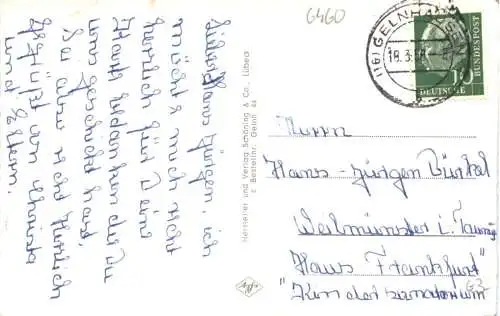 6460
(16) GELNHAUSEN
18.3.58
10
DEUTSCHE
BUNDESPOST
Lieber Hans Jürgen, ich
möchte mich recht
herzlich für Deine
Karte bedanken die Du
uns geschickt hast.
Sei also recht herzlich
gegrüßt von
und Eltern.
Hersteller und Verlag Schöning & Co., Lübeck
Bestellnr. Geln
Herrn
Hans-Jürgen Bünkel
Weilmünster i. Taunus
Haus Frankfurt
"Kindersanatorium"